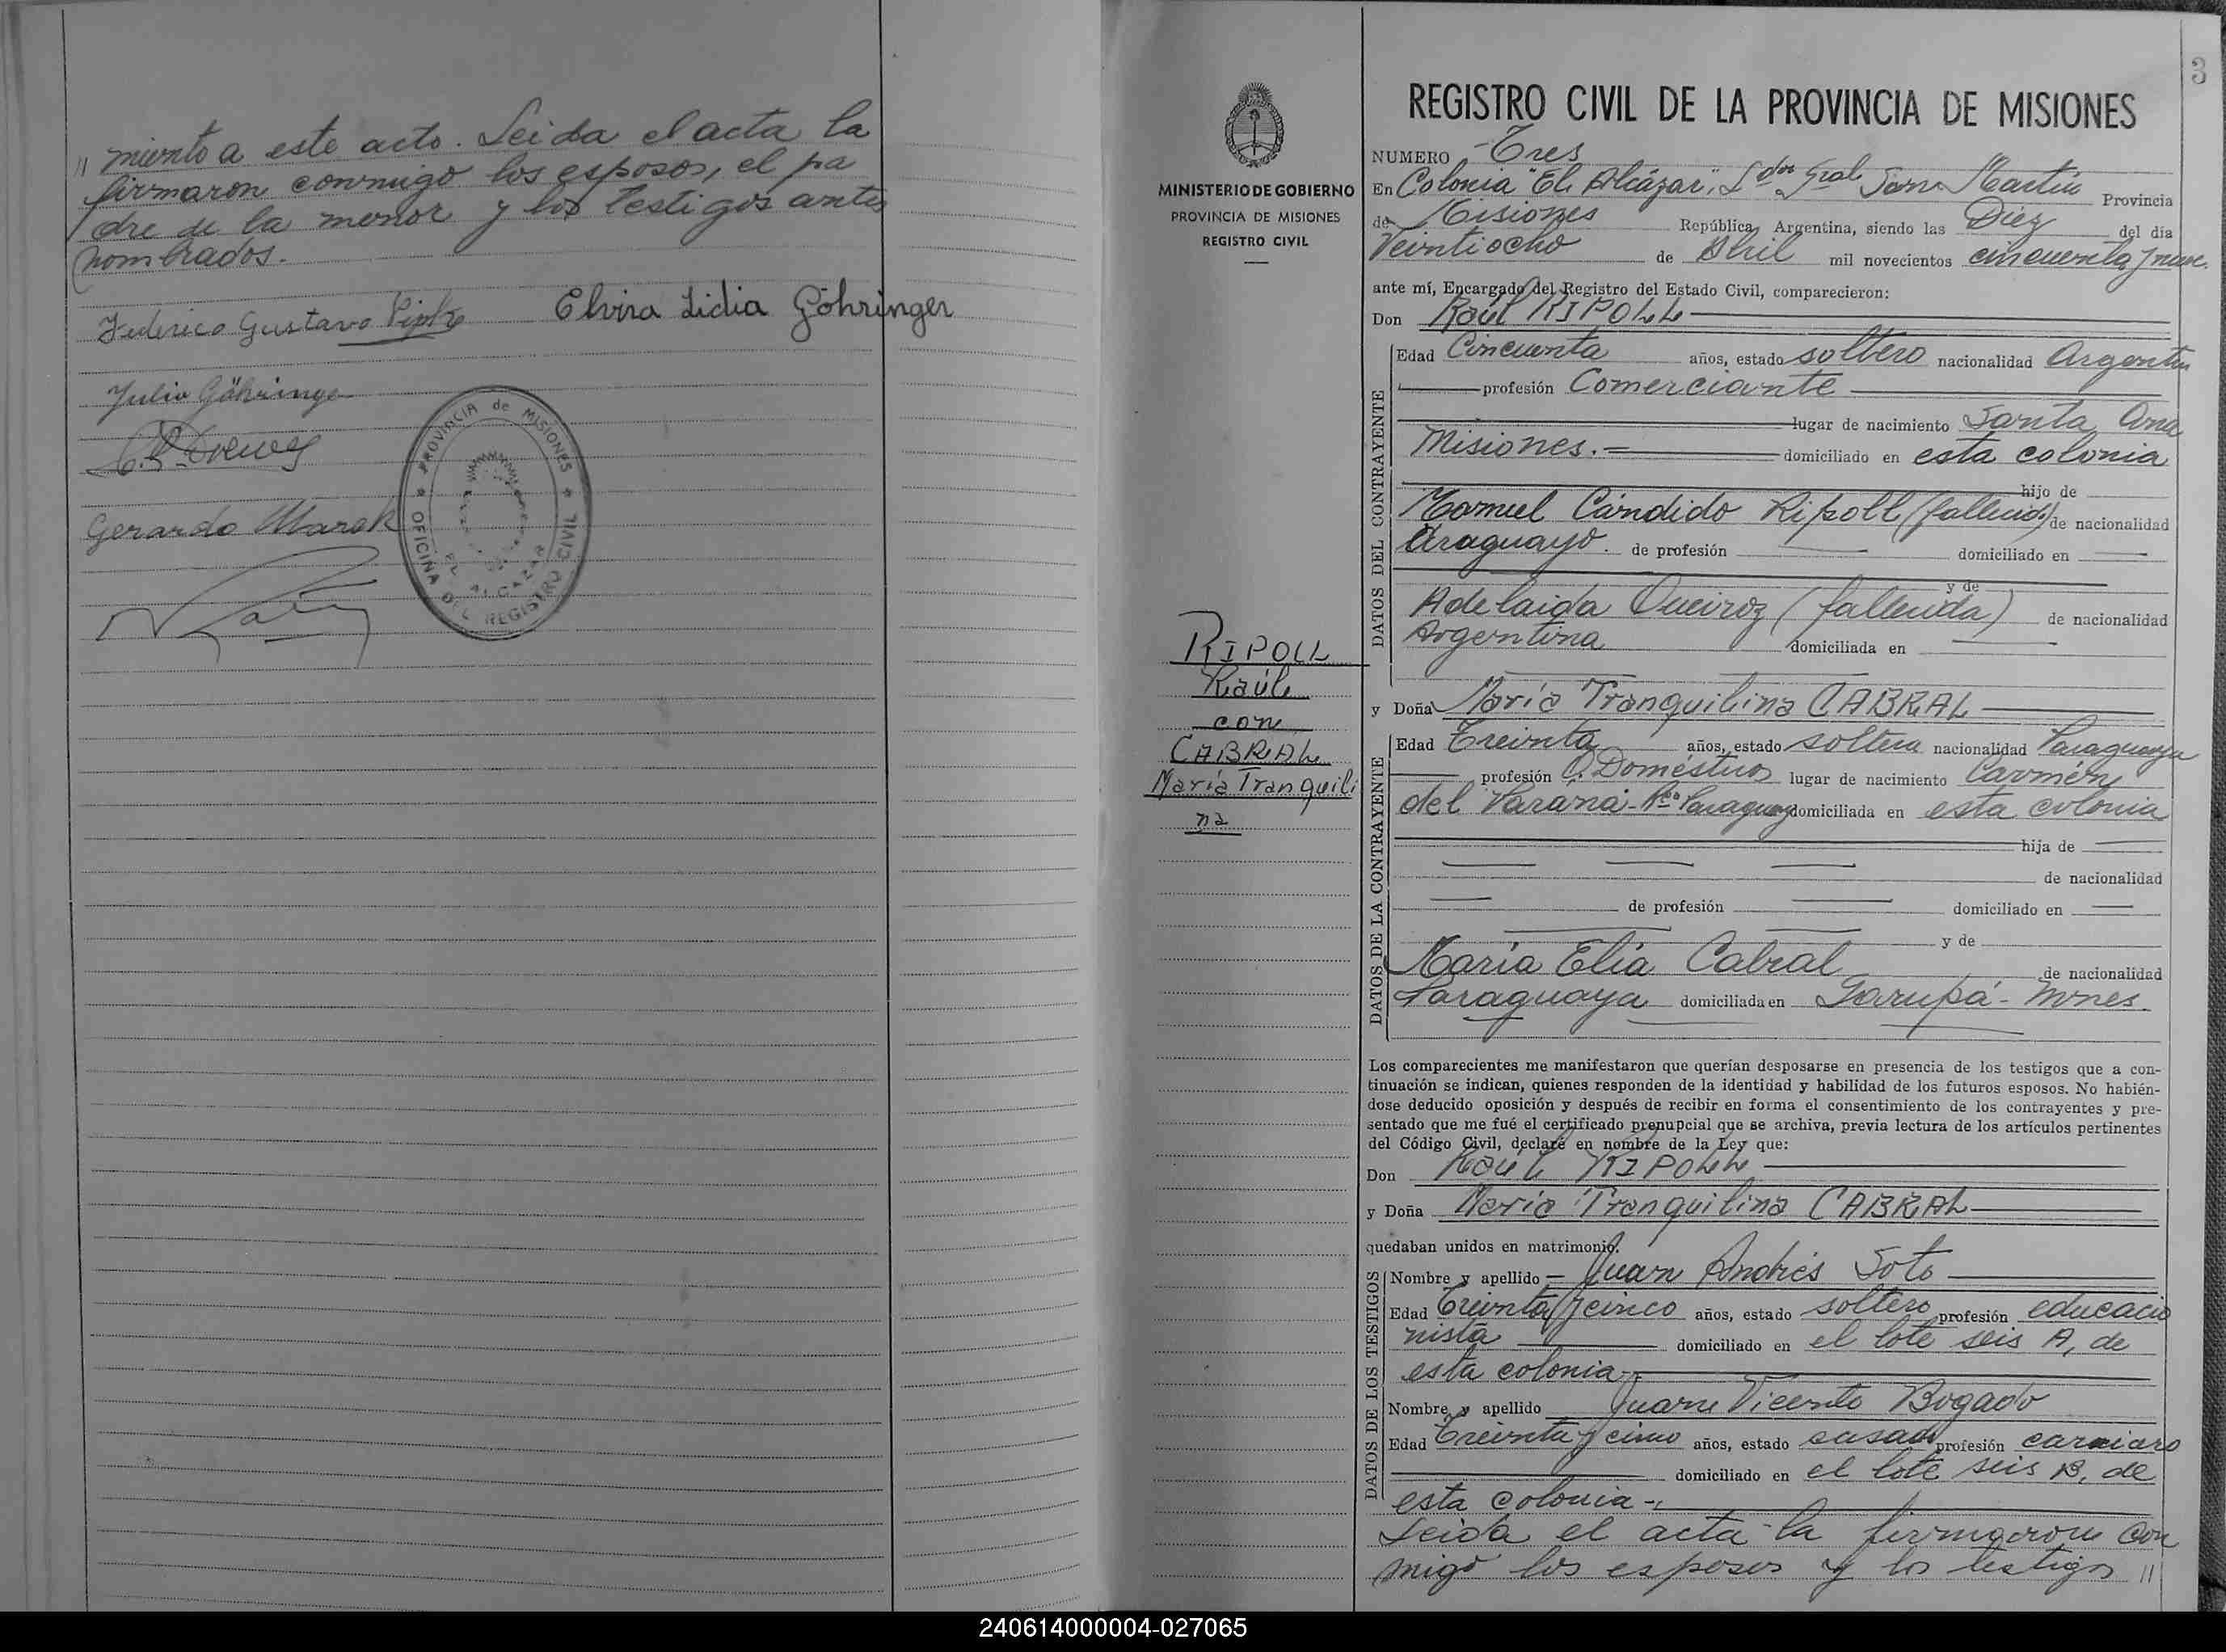 // miento a este acto. Leida el acta la
firmaron conmigo los esposos, el pa
dre de la menor y los testigos antes
nombrados.-
Federico Gustavo
Elvira Lidia Göhringer
Julio Göhringer
Gerardo Marek
PROVINCIA de MISIONES
OFICINA DEL REGISTRO CIVIL
EL ALCAZAR
3
MINISTERIO DE GOBIERNO
PROVINCIA DE MISIONES
REGISTRO CIVIL
RIPOLL
Raúl
con
CABRAL
María Tranquili
na
REGISTRO CIVIL DE LA PROVINCIA DE MISIONES
NUMERO -Tres
En Colonia "El Alcázar", Ldor Gral San Martín Provincia
de Misiones República Argentina, siendo las Diez del día
Veintiocho de Abril mil novecientos cincuenta y nueve.
ante mí, Encargado del Registro del Estado Civil, comparecieron:
Don Raúl RIPOLL
DATOS DEL CONTRAYENTE
Edad Cincuenta años, estado soltero nacionalidad Argentin
profesión Comerciante
lugar de nacimiento Santa Ana
Misiones.- domiciliado en esta colonia
hijo de
Manuel Cándido Ripoll (fallecido) de nacionalidad
Uruguayo. de profesión domiciliado en
y de
Adelaida Queiroz (fallecida) de nacionalidad
Argentina domiciliada en
y Doña María Tranquilina CABRAL
DATOS DE LA CONTRAYENTE
Edad Treinta años, estado soltera nacionalidad Paraguaya
profesión Q. Domésticos lugar de nacimiento Carmen
del Paraná-Rca Paraguay domiciliada en esta colonia
hija de
de nacionalidad
de profesión domiciliado en
y de
María Elia Cabral de nacionalidad
Paraguaya domiciliada en Garupá - Mnes.
Los comparecientes me manifestaron que querían desposarse en presencia de los testigos que a con-
tinuación se indican, quienes responden de la identidad y habilidad de los futuros esposos. No habién-
dose deducido oposición y después de recibir en forma el consentimiento de los contrayentes y pre-
sentado que me fué el certificado prenupcial que se archiva, previa lectura de los artículos pertinentes
del Código Civil, declaré en nombre de la Ley que:
Don Raúl RIPOLL
y Doña María Tranquilina CABRAL
quedaban unidos en matrimonio.
DATOS DE LOS TESTIGOS
Nombre y apellido - Juan Andrés Soto
Edad Treinta y cinco años, estado soltero profesión educacio
nista domiciliado en el lote seis A, de
esta colonia-
Nombre y apellido Juan Vicente Bogado
Edad Treinta y cinco años, estado casado profesión carnicero
domiciliado en el lote seis B, de
esta colonia-,
Leida el acta la firmaron con
migo los esposos y los testigos //
240614000004-027065